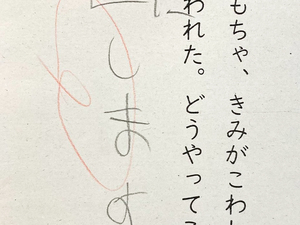 もちゃ、きみがこわし
われた。どうやって
します